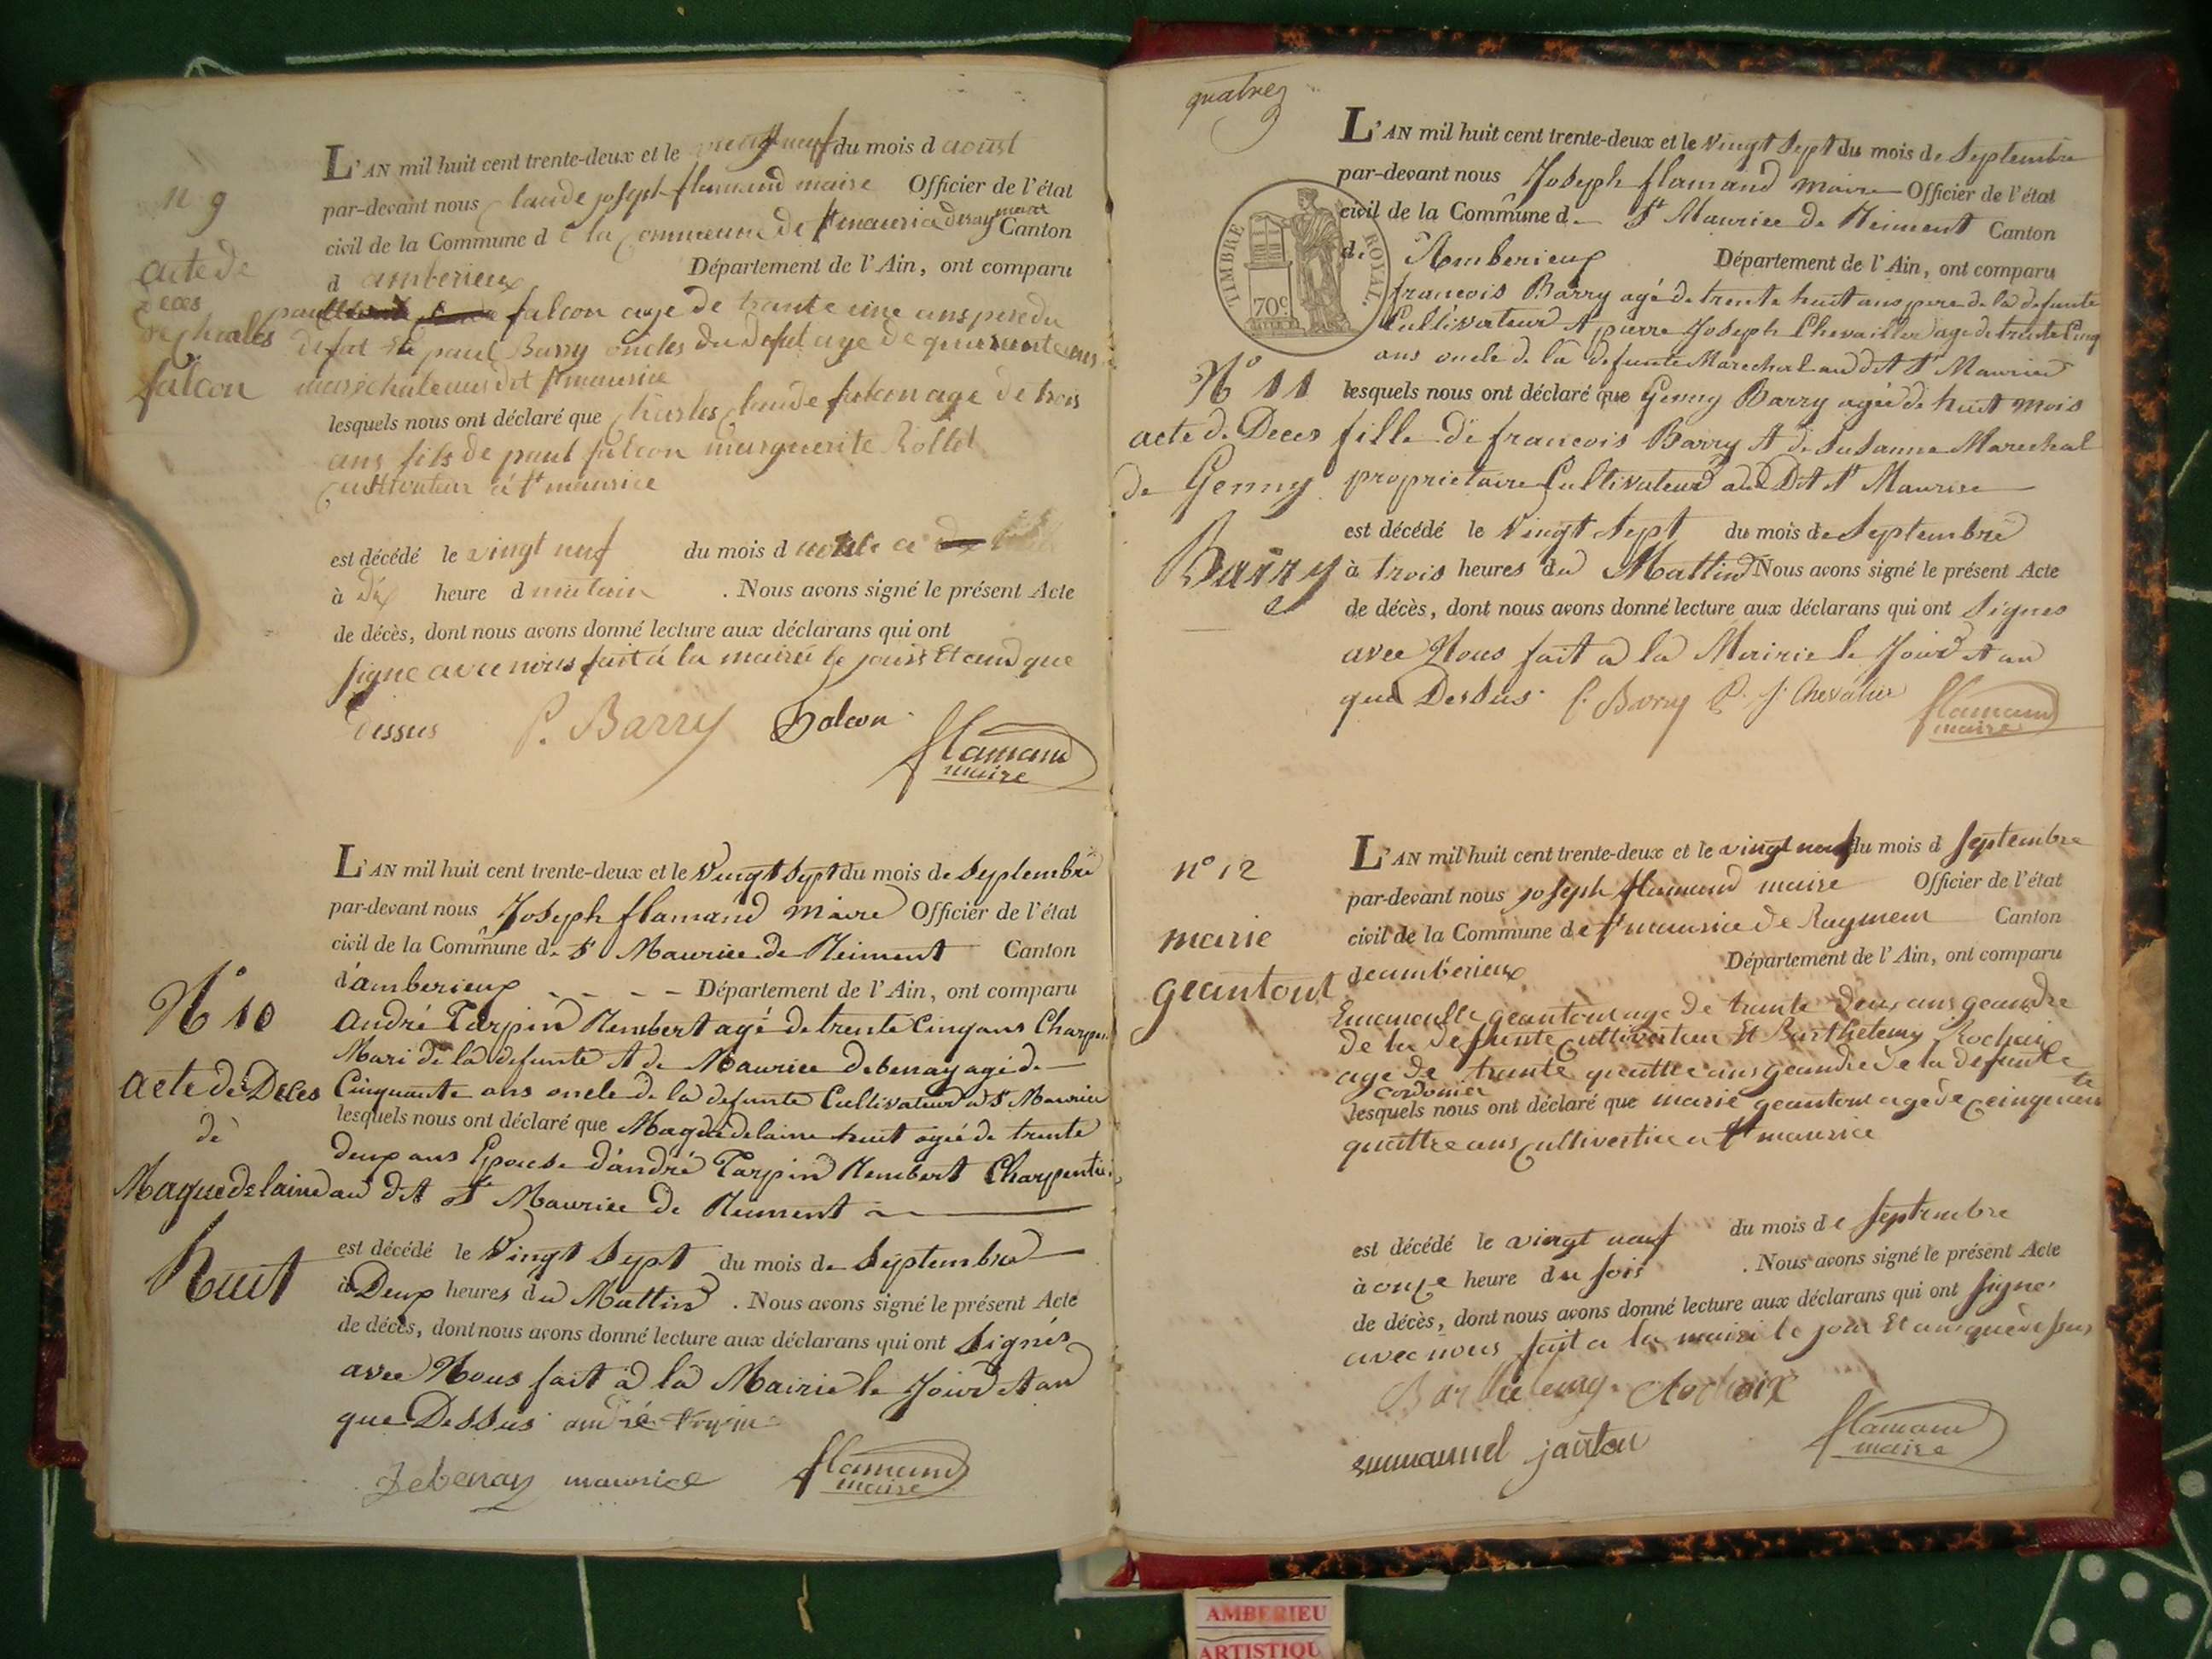 n 9
acte de
deces
de charles
falcon
L'AN mil huit cent trente-deux et le vingt neuf du mois d aoust
par-devant nous Claude joseph flamand maire Officier de l'état
civil de la Commune d e la Commeune de st maurice deray mant Canton
d amberieux Département de l'Ain, ont comparu
paul falcon age de trante une ans pere du
defut paul Barry oncles du defut age de quarente ans
st maurice
lesquels nous ont déclaré que charles Claude falcon age de trois
ans fils de paul falcon marguerite Rollet
Cultivateur a st maurice
est décédé le vingt neuf du mois d
à dix heure d matain . Nous avons signé le présent Acte
de décès, dont nous avons donné lecture aux déclarans qui ont
signe avec nous fait a la mairie le jours Et and que
dessus P. Barry Falcon flamand
maire
N° 10
acte de Deces
de
Maguedelaine
huit
L'AN mil huit cent trente-deux et le Vingt Sept du mois de Septembre
par-devant nous Joseph flamand Maire Officier de l'état
civil de la Commune de St Maurice de Reiment Canton
d'amberieux - - - - Département de l'Ain, ont comparu
André Tarpin Rembert agé de trente Cinq ans Charpen
Mari de la defunte et de Maurice debenay agé de
Cinquante ans oncle de la defunte Cultivateur a St Maurice
lesquels nous ont déclaré que Maguedelaine huit agée de trente
deux ans Epouse d'andré Tarpin Rembert Charpentier
au dit St Maurice de Reiment
est décédé le Vingt Sept du mois de Septembre
à Deux heures du Mattin . Nous avons signé le présent Acte
de décès, dont nous avons donné lecture aux déclarans qui ont Signés
avec Nous fait a la Mairie le Jour et an
que Dessus andré
debenay maurice flamand
maire
quatre
TIMBRE ROYAL.
70c
N° 11
acte de Deces
de Genny
Barry
L'AN mil huit cent trente-deux et le Vingt Sept du mois de Septembre
par-devant nous Joseph flamand Maire Officier de l'état
civil de la Commune de St Maurice de Reiment Canton
d. Amberieux Département de l'Ain, ont comparu
francois Barry agé de trente huit ans pere de la defunte
Cultivateur et pierre Joseph Chevallier agé de trente Cinq
ans oncle de la defunte Marechal au dit St Maurice
lesquels nous ont déclaré que Genny Barry agée de huit Mois
fille de francois Barry et de Susanne Marechal
proprietaire Cultivateur au Dit St Maurice
est décédé le Vingt Sept du mois de Septembre
à trois heures du Mattin Nous avons signé le présent Acte
de décès, dont nous avons donné lecture aux déclarans qui ont Signes
avec Nous fait a la Mairie le Jour et an
que Dessus f. Barry P. J. Chevalier flamand
maire
n° 12
marie
geantout
L'AN mil huit cent trente-deux et le vingt neuf du mois d septembre
par-devant nous joseph flamand maire Officier de l'état
civil de la Commune de st maurice de Raymeur Canton
de amberieux Département de l'Ain, ont comparu
geantout age de trante deux ans geandre
de la defunte Cultivateur Et Barthelemy Rochaix
age de trante quattre ans geandre de la defunte
cordonier
lesquels nous ont déclaré que marie geantout age de
quattre ans a st maurice
est décédé le vingt neuf du mois de septembre
à onze heure du soir . Nous avons signé le présent Acte
de décès, dont nous avons donné lecture aux déclarans qui ont signe
avec nous fait a la mairi le jour Et an que de sus
Barthelemy Rochaix
emmanuel jantou flamand
maire
AMBERIEU
ARTISTIQU